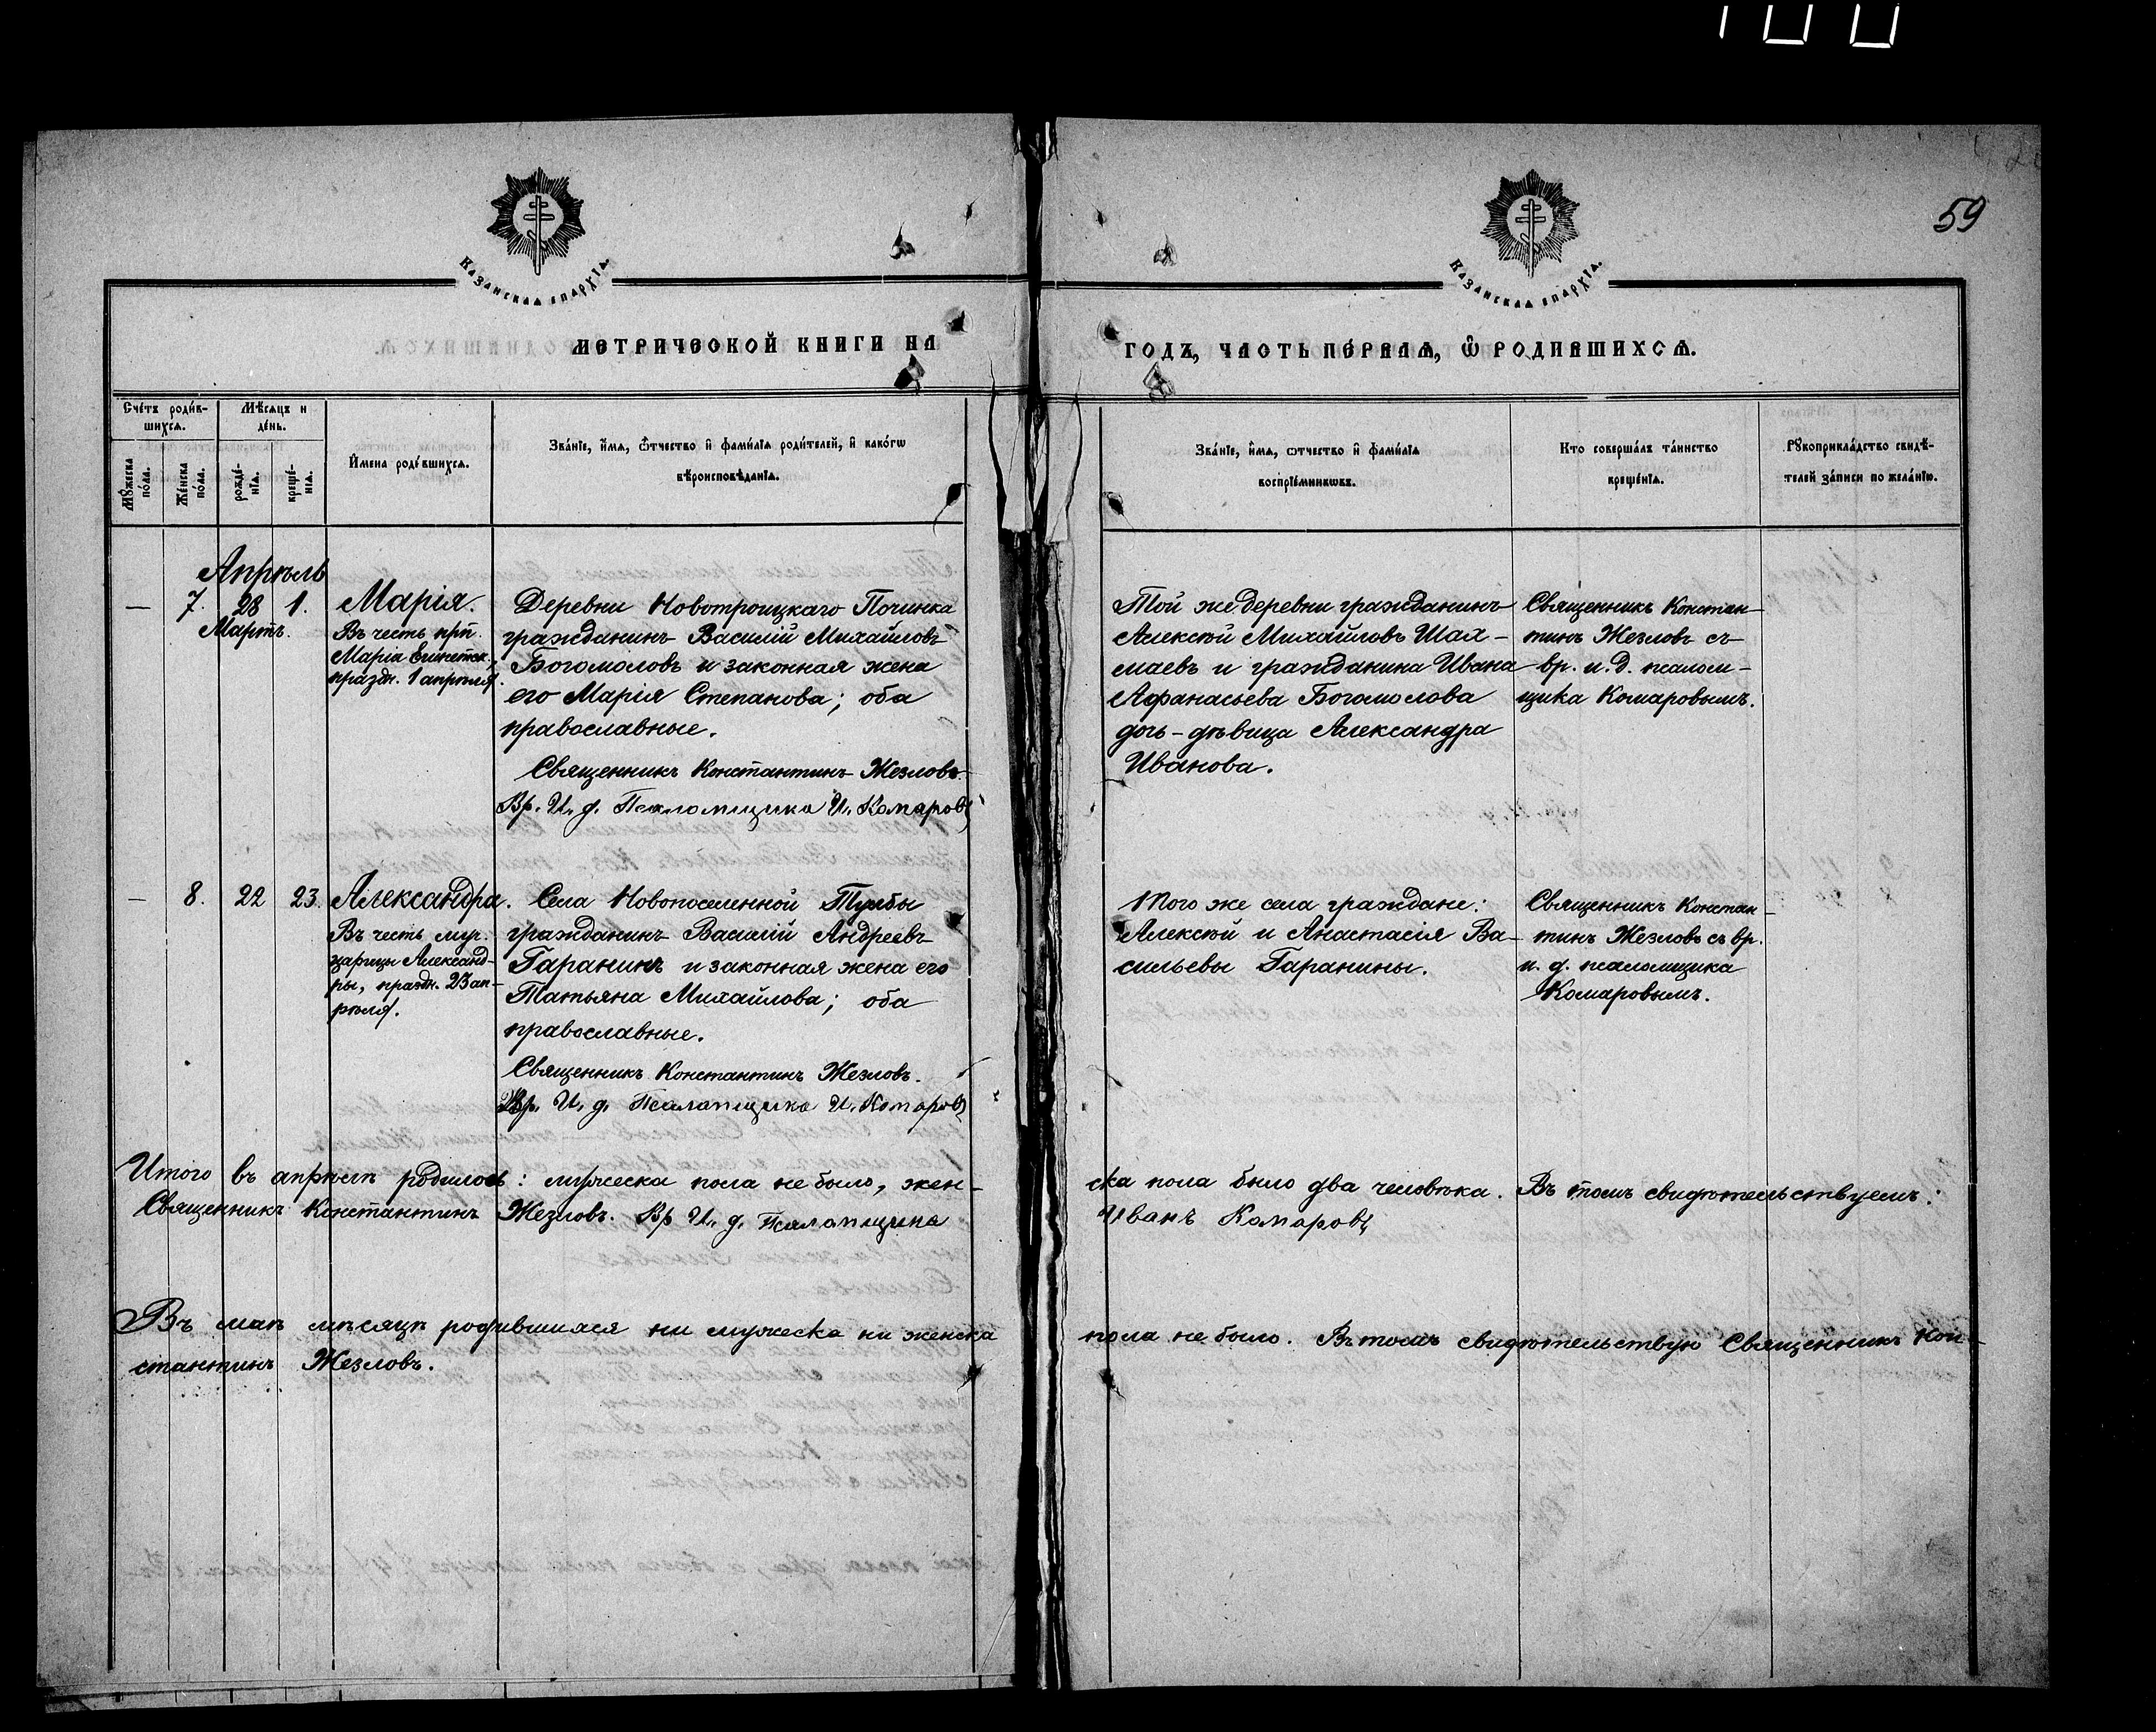 59
Казанская епархїа.
Казанская епархїа.
МЕТРИЧЕСКОЙ КНИГИ НА
ГОДЪ, ЧАСТЬ ПЕ́РВАЯ, Ѽ РОДИВШИХСѦ.
Сче́тъ роди́в-
шихсѧ.
Мѣ́сѧцъ и
де́нь.
Мꙋ́жеска
по́ла.
Же́нска
по́ла.
рожде́-
нїѧ.
креще́-
нїѧ.
И҆мена роди́вшихсѧ.
Зва́нїе, и҆́мѧ, ѻ҆́тчество и҆ фами́лїѧ роди́телей, и҆ како́гѡ
вѣроисповѣ́данїѧ.
Зва́нїе, и҆́мѧ, ѻтчество и҆ фами́лїѧ
воспрїе́мникѡвъ.
Кто соверша́лъ та́инство
креще́нїѧ.
Рꙋкоприкла́дство свидѣ́-
телей за́писи по жела́нїю.
Апрѣль
— 7. 28 1.
Мартъ.
Марія.
Въ честь прп.
Маріи Египетск.,
праздн. 1 апрѣля.
Деревни Новотроицкаго Починка
гражданинъ Василій Михайловъ
Богомоловъ и законная жена
его Марія Степанова; оба
православные.
Священникъ Константинъ Жезловъ.
Вр. И. д. Псаломщика И. Комаровъ
Той же деревни гражданинъ
Алексѣй Михайловъ Шах-
маевъ и гражданина Ивана
Афанасьева Богомолова
дочь-дѣвица Александра
Иванова.
Священникъ Констан-
тинъ Жезловъ съ
вр. и. д. псалом-
щика Комаровымъ.
— 8. 22 23.
Александра.
Въ честь муч.
царицы Александ-
ры, праздн. 23 ап-
рѣля.
Села Новопоселенной Тумбы
гражданинъ Василій Андреевъ
Гаранинъ и законная жена его
Татьяна Михайлова; оба
православные.
Священникъ Константинъ Жезловъ.
Вр. И. д. Псаломщика И. Комаровъ
Того же села граждане:
Алексѣй и Анастасія Ва-
сильевы Гаранины.
Священникъ Констан-
тинъ Жезловъ съ вр.
и. д. псаломщика
Комаровымъ.
Итого въ апрѣлѣ родилось: мужеска пола не было, жен-
ска пола было два человѣка. Въ томъ свидѣтельствуемъ:
Священникъ Константинъ Жезловъ. Вр И. д. Псаломщика
Иванъ Комаровъ
Въ маѣ мѣсяцѣ родившихся ни мужеска ни женска
пола не было. Въ томъ свидѣтельствую Священникъ Кон-
стантинъ Жезловъ.